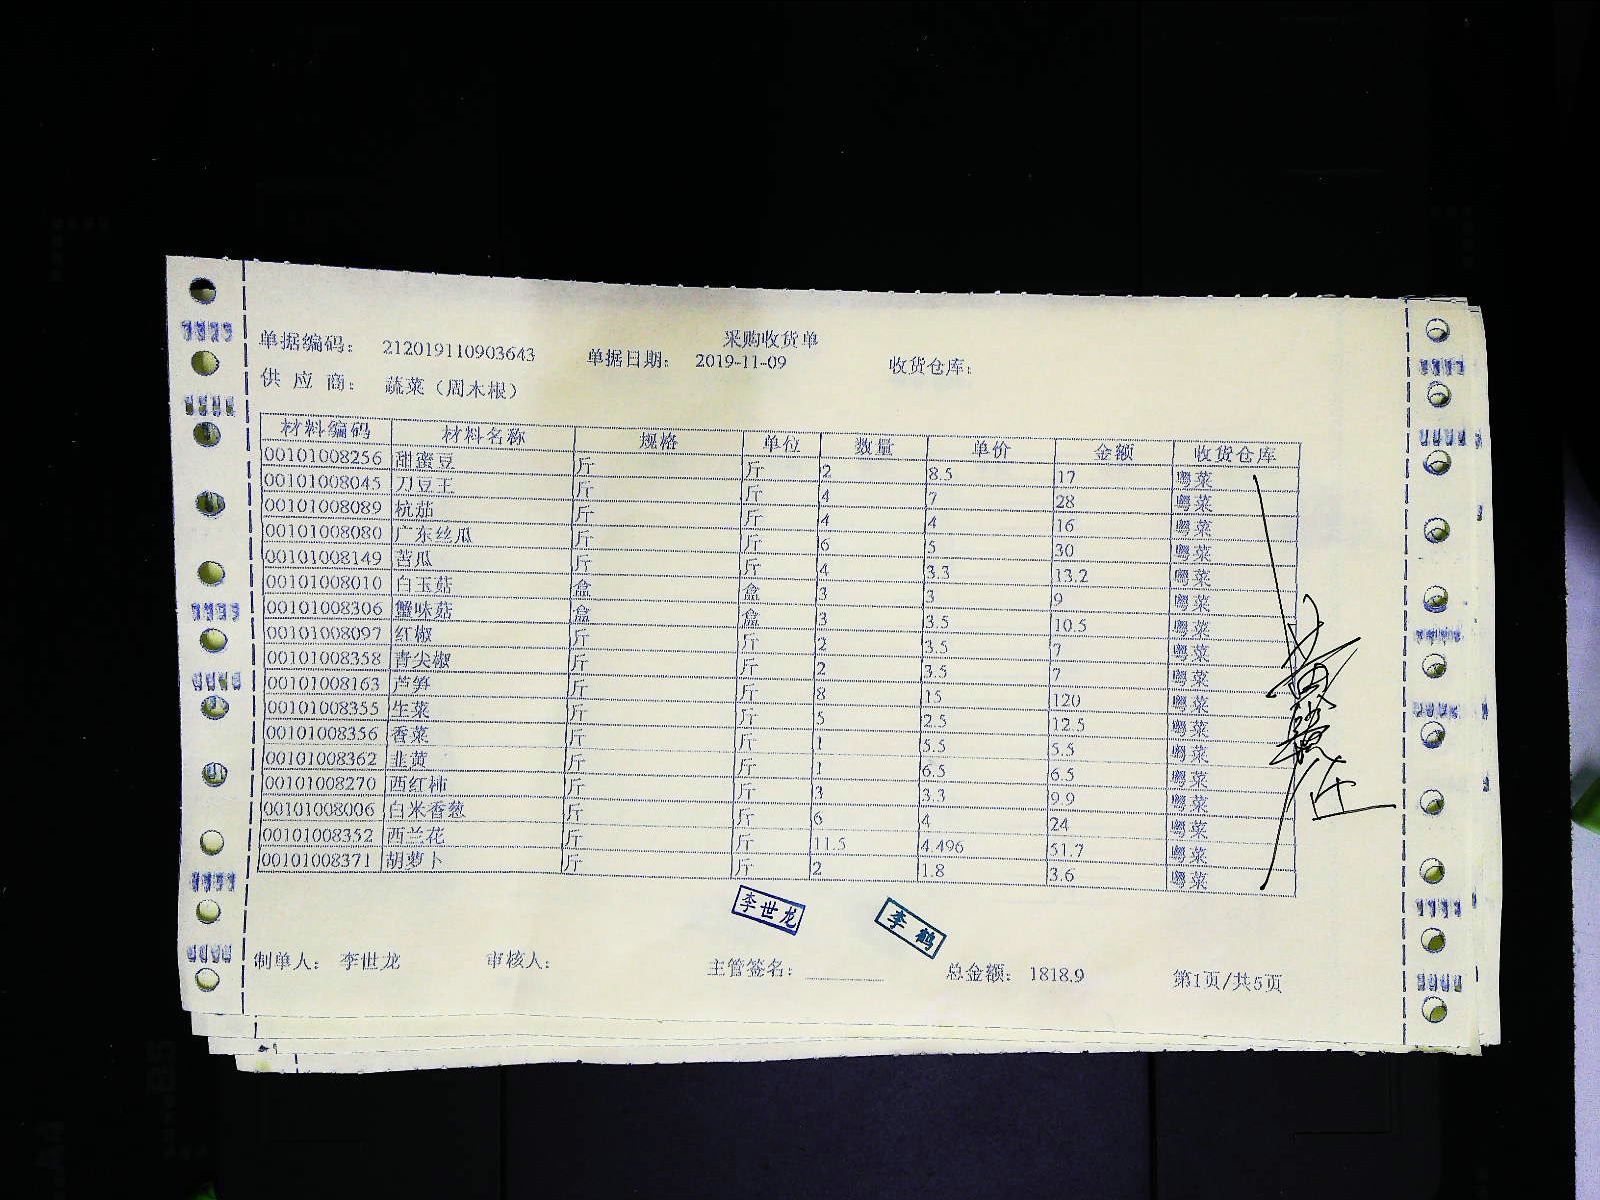 采购收货单
单据编码： 212019110903643 单据日期： 2019-11-09 收货仓库：
供 应 商： 蔬菜（周木根）
材料编码 材料名称 规格 单位 数量 单价 金额 收货仓库
00101008256 甜蜜豆 斤 斤 2 8.5 17 粤菜
00101008045 刀豆王 斤 斤 4 7 28 粤菜
00101008089 杭茄 斤 斤 4 4 16 粤菜
00101008080 广东丝瓜 斤 斤 6 5 30 粤菜
00101008149 苦瓜 斤 斤 4 3.3 13.2 粤菜
00101008010 白玉菇 盒 盒 3 3 9 粤菜
00101008306 蟹味菇 盒 盒 3 3.5 10.5 粤菜
00101008097 红椒 斤 斤 2 3.5 7 粤菜
00101008358 青尖椒 斤 斤 2 3.5 7 粤菜
00101008163 芦笋 斤 斤 8 15 120 粤菜
00101008355 生菜 斤 斤 5 2.5 12.5 粤菜
00101008356 香菜 斤 斤 1 5.5 5.5 粤菜
00101008362 韭黄 斤 斤 1 6.5 6.5 粤菜
00101008270 西红柿 斤 斤 3 3.3 9.9 粤菜
00101008006 白米香葱 斤 斤 6 4 24 粤菜
00101008352 西兰花 斤 斤 11.5 4.496 51.7 粤菜
00101008371 胡萝卜 斤 斤 2 1.8 3.6 粤菜
李世龙 李鹤
制单人： 李世龙 审核人： 主管签名： 总金额： 1818.9 第1页/共5页